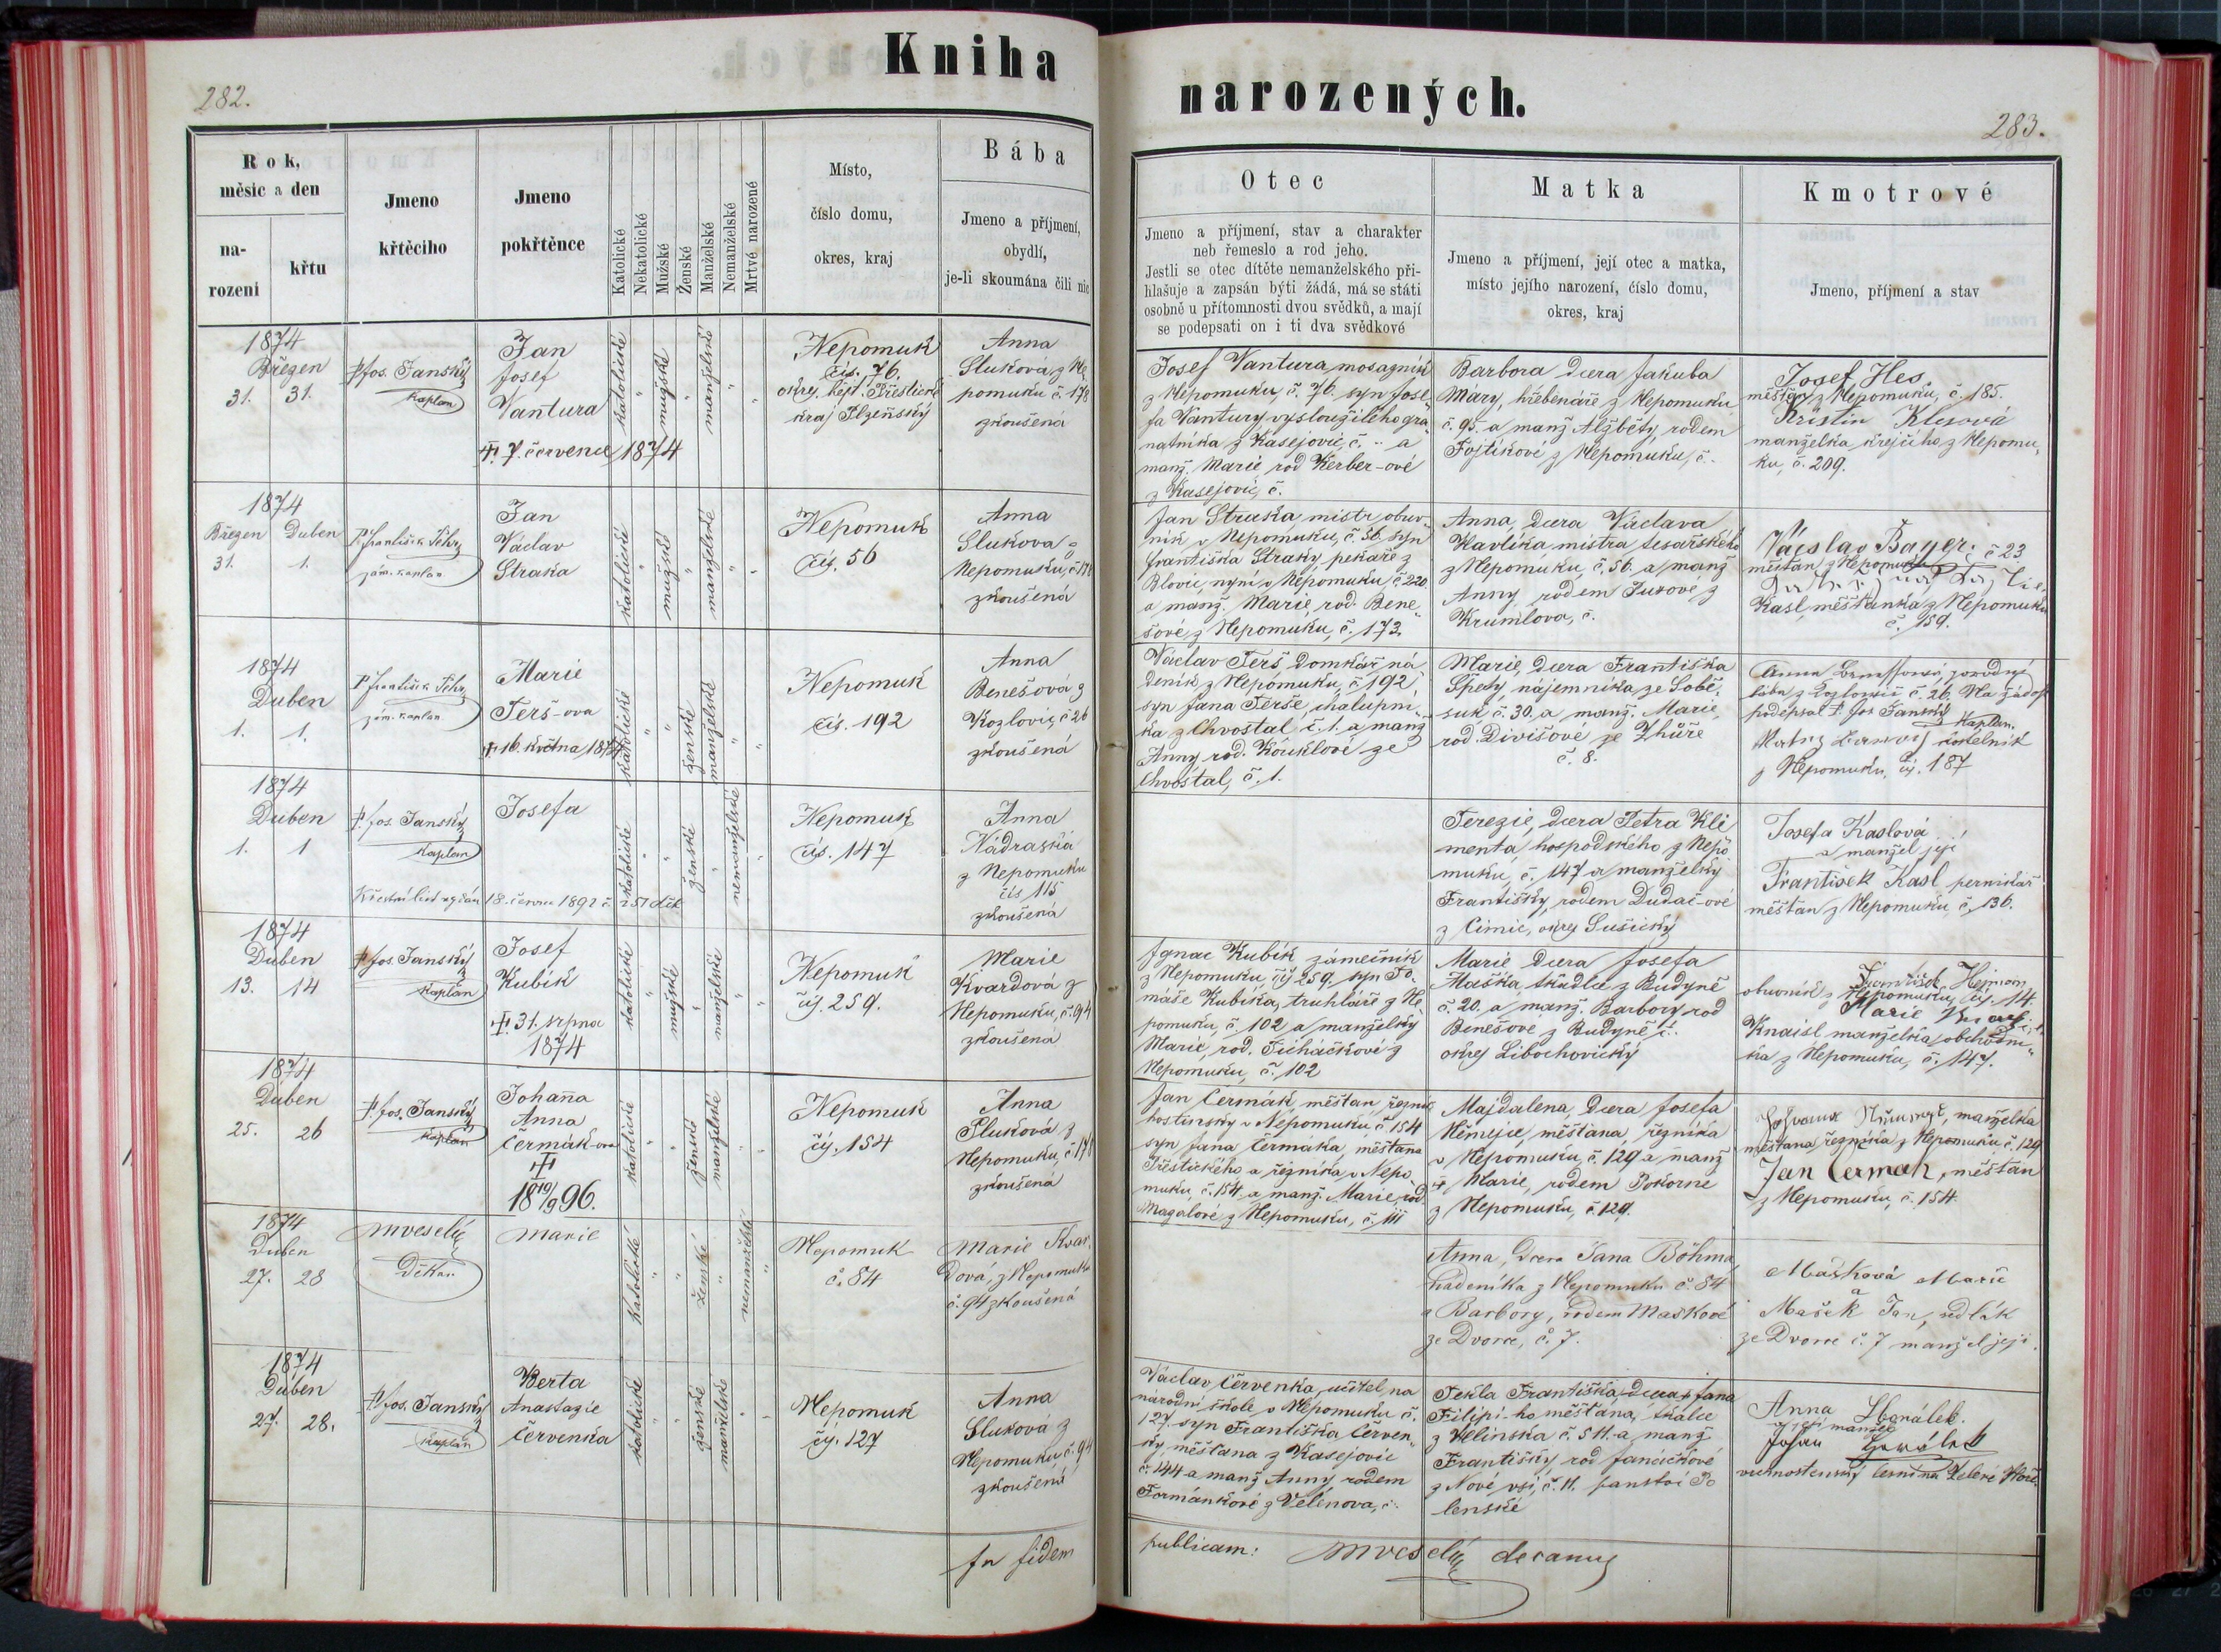 Kniha
282.
Rok,
měsíc a den
na-
rození
křtu
Jmeno
křtěcího
Jmeno
pokřtěnce
Katolické
Nekatolické
Mužské
Ženské
Manželské
Nemanželské
Mrtvé narozené
Místo,
číslo domu,
okres, kraj
Bába
Jmeno a příjmení,
obydlí,
je-li skoumána čili nic
1874
Březen
31. 31.
P. Jos. Janský
kaplan
Jan
Josef
Vantura
7. července 1874
katolické
mužské
manželské
Nepomuk
čís. 76.
okrej. hejt. Přestické
kraj Plzeňský
Anna
Sluková z Ne
pomuku č. 178
zkoušená
1874
Březen Duben
31. 1.
P. František
zám. kaplan
Jan
Václav
Straka
katolické
mužské
manželské
Nepomuk
čís. 56
Anna
Slukova z
Nepomuku, č. 178
zkoušená
1874
Duben
1. 1.
P. František
zám. kaplan
Marie
Terš-ova
16. května 1874
katolické
ženské
manželské
Nepomuk
čís. 192
Anna
Benešová z
Kozlovic, č 26
zkoušená
1874
Duben
1. 1
P. Jos. Janský
kaplan
Josefa
Křestní list vydán 18. června 1892 č.
katolické
ženské
nemanželské
Nepomuk
čís. 147
Anna
Nádraská
z Nepomuku
čís 115
zkoušená
1874
Duben
13. 14
P. Jos. Janský
kaplan
Josef
Kubík
31. srpna
1874
katolické
mužské
manželské
Nepomuk
čís. 259.
Marie
Kvardová z
Nepomuku, č. 94
zkoušená
1874
Duben
25. 26
P. Jos. Janský
kaplan
Johana
Anna
Čermák-ova
18 19/9 96.
katolické
ženské
manželské
Nepomuk
čís. 154
Anna
Sluková z
Nepomuku, č 178
zkoušená
1874
Duben
27. 28
MVeselý
Děkan
Marie
katolické
ženské
nemanželské
Nepomuk
č. 84
Marie Kvar
dová, z Nepomuka
č. 94 zkoušená
1874
Duben
27. 28.
P. Jos. Janský
kaplan
Berta
Anastazie
Červenka
katolické
ženské
manželské
Nepomuk
čís. 127
Anna
Sluková z
Nepomuku č. 94
zkoušená
In fidem
narozených.
283.
Otec
Jmeno a příjmení, stav a charakter
neb řemeslo a rod jeho.
Jestli se otec dítěte nemanželského při-
hlašuje a zapsán býti žádá, má se státi
osobně u přítomnosti dvou svědků, a mají
se podepsati on i ti dva svědkové
Matka
Jmeno a příjmení, její otec a matka,
místo jejího narození, číslo domu,
okres, kraj
Kmotrové
Jmeno, příjmení a stav
Josef Vantura, mosazník
z Nepomuku č. 76. syn Jose-
fa Vantury vysloužilého gra-
natníka z Kasejovic č. - a
manž. Marie rod Kerber-ové
z Kasejovic, č.
Barbora dcera Jakuba
Máry, hřebenáře z Nepomuku
č. 95. a manž Alžběty, rodem
Fojtíkové z Nepomuku, č -
Josef Hes
měšťan z Nepomuku, č. 185.
Kristin Klesová
manželka krejčího z Nepomu-
ku, č. 209.
Jan Straka, mistr obuv-
ník v Nepomuku, č. 56. syn
Františka Straky, pekaře z
Blovic, nyní v Nepomuku č. 220
a manž. Marie, rod. Bene-
šové, z Nepomuku, č. 173.
Anna, dcera Václava
Havlíka, mistra tesařského
z Nepomuku, č. 56. a manž
Anny rodem Turové z
Krumlova, č.
Václav Bayer. č 23
měšťan z Nepomuku
Kasl, měšťanka z Nepomuku
č. 159.
Václav Terš domkář ná
deník z Nepomuku, č 192
syn Jana Terše, chalupní-
ka z Chvostal, č. 1. a manž
Anny rod. Kouklové ze
Chvostal, č. 1.
Marie, dcera Františka
Špety, nájemníka ze Sobě-
suk č. 30. a manž. Marie,
rod. Divišové ze Zhůře
č. 8.
Anna
bába z Kozlovic č. 26. Na žádost
podepsal P. Jos Janský Kaplan.
kostelník
z Nepomuku, čís. 187
Terezie, dcera Petra Kli
menta, hospodského z Nepo
muku, č. 147 a manželky
Františky, rodem Dudač-ové
z Cimic, okrej Sušický
Josefa Kaslová
a manžel její
František Kasl perníkář
měšťan z Nepomuku č. 136.
Ignac Kubík zámečník
z Nepomuku, čís 259. syn To-
máše Kubíka, truhláře z Ne
pomuku č. 102 a manželky
Marie, rod. Ticháčkové z
Nepomuku, č. 102
Marie dcera Josefa
Maška, tkadlce z Budyně
č. 20. a manž. Barbory rod
Benešové z Budyně č.
okrej Libochovický
František Hejman
obuvník z Nepomuku, čís. 14.
Marie
Knaisl manželka obchodní-
ka z Nepomuku, č. 147.
Jan Čermák měšťan, řezník
hostinský v Nepomuku č 154
syn Jana Čermáka, měšťana
Přestického a řezníka v Nepo
muku, č. 154 a manž. Marie, rod
Magalové z Nepomuku, č. 111
Majdalena, dcera Josefa
Němejce, měšťana, řezníka
v Nepomuku č. 129 a manž
Marie, rodem Pokorné
z Nepomuku, č. 129.
manželka
měšťana řezníka z Nepomuku, č. 129
Jan Čermak, měšťan
z Nepomuku, č. 154.
Anna, dcera Jana Böhma
nádeníka z Nepomuku č. 84
a Barbory, rodem Maškové
ze Dvorce, č. 7.
Mašková Marie
a
Mašek Jan, sedlák
ze Dvorce č. 7 manžel její.
Václav Červenka, učitel na
národní škole v Nepomuku č.
127. syn Františka Červen-
ky měšťana z Kasejovic
č. 144 a manž. Anny rodem
Formánkové z Velenova, č.
Tekla Františka, dcera Jana
Filipi-ho měšťana, tkalce
z Hlinska č. 511. a manž
Františky, rod Jančíčkové
z Nové vsi, č. 11. panství Po
lenské
Anna Skřenálek.
její manžel
Johan
vrchnostenský lesní na Zelené Hoře
publicam: MVeselý decanus